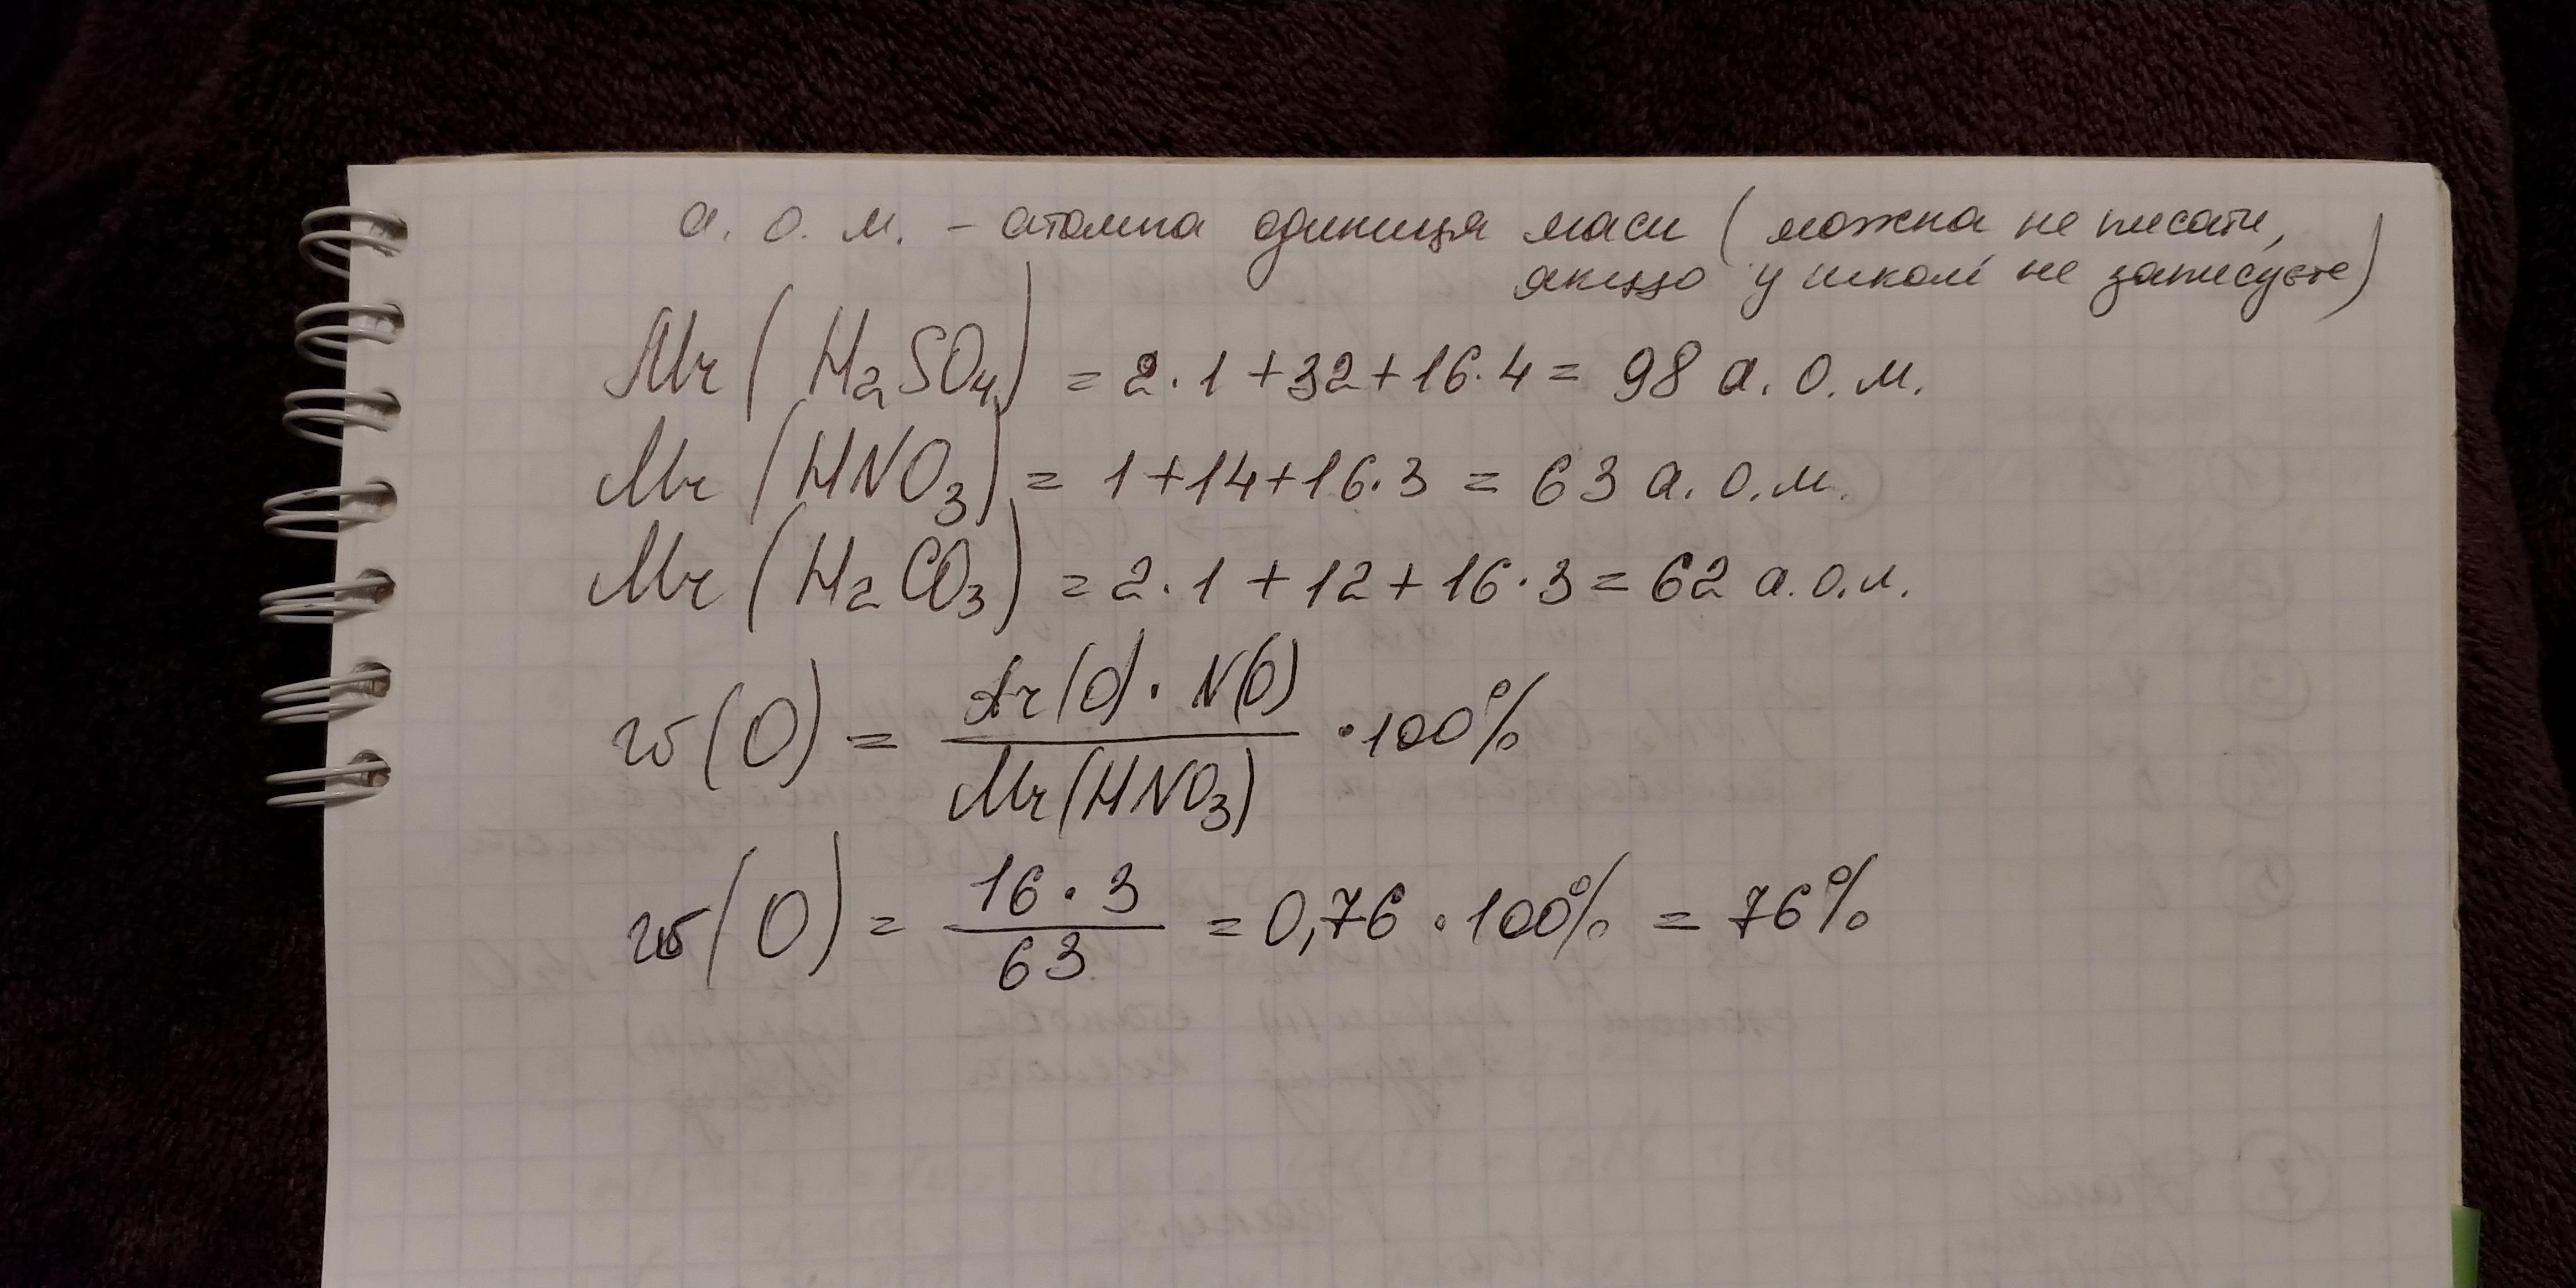 а. о. м. - атомна одиниця маси (можна не писати,
якщо у школі не записуєте)
Mr(H₂SO₄) = 2·1+32+16·4 = 98 а. о. м.
Mr(HNO₃) = 1+14+16·3 = 63 а. о. м.
Mr(H₂CO₃) = 2·1+12+16·3 = 62 а. о. м.
w(O) = Ar(O)·N(O) / Mr(HNO₃) ·100%
w(O) = 16·3 / 63 = 0,76·100% = 76%